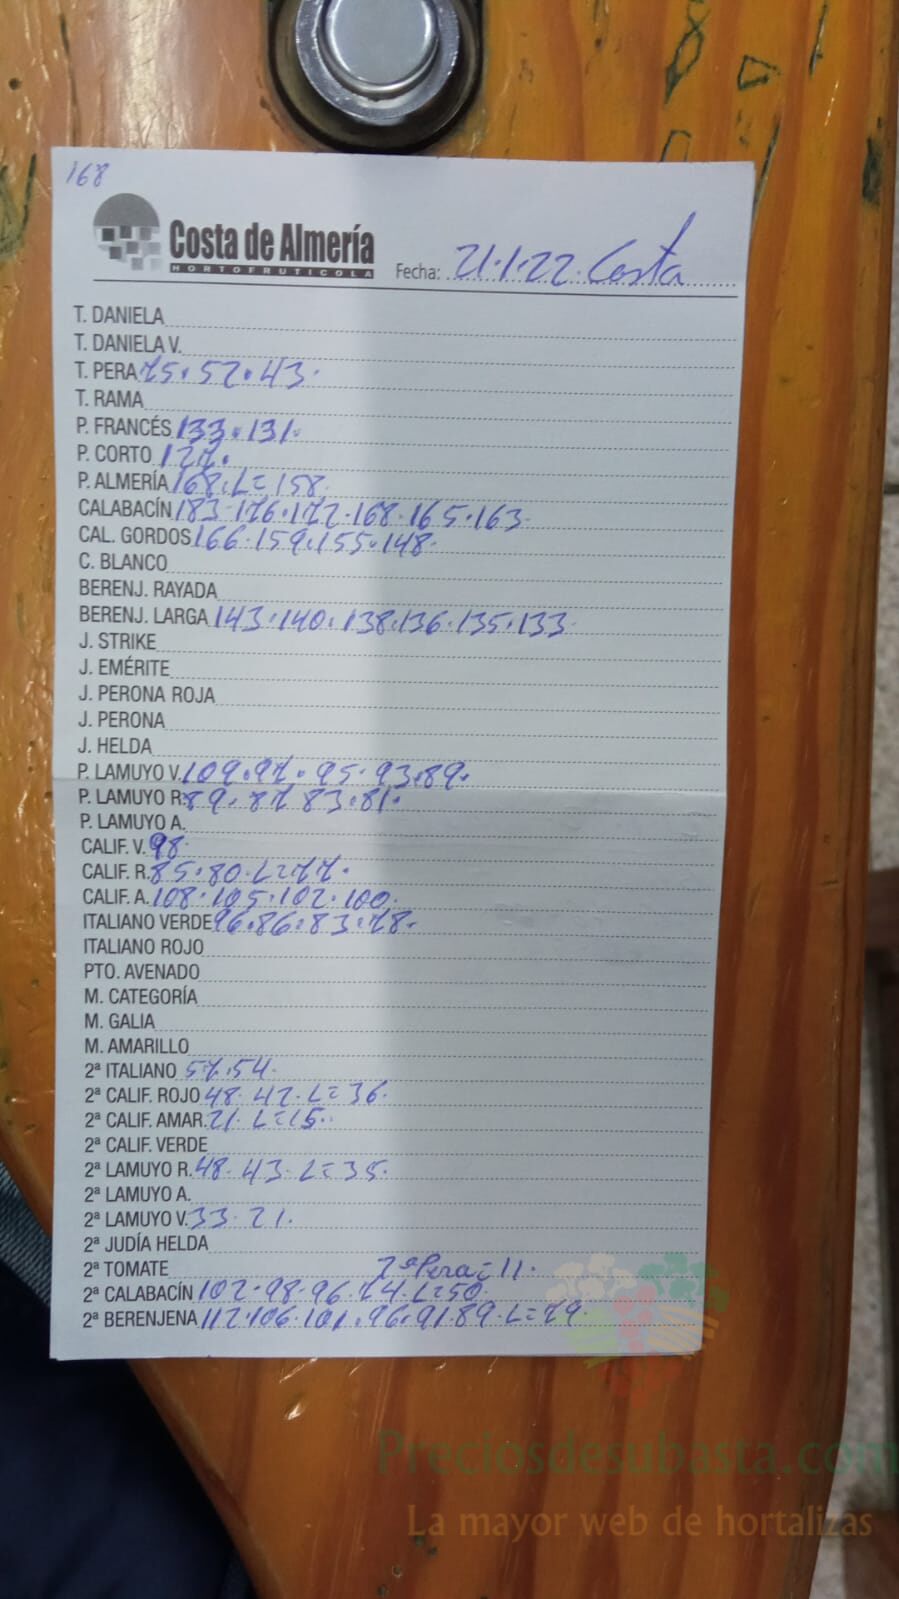 168
Costa de Almería
HORTOFRUTICOLA
Fecha: 21.1.22. Costa
T. DANIELA
T. DANIELA V.
T. PERA 75.52.43.
T. RAMA
P. FRANCÉS 133.131.
P. CORTO 127.
P. ALMERÍA 168.L=158
CALABACÍN 183.176.172.168.165.163
CAL. GORDOS 166.159.155.148
C. BLANCO
BERENJ. RAYADA
BERENJ. LARGA 143.140.138.136.135.133
J. STRIKE
J. EMÉRITE
J. PERONA ROJA
J. PERONA
J. HELDA
P. LAMUYO V. 109.97.95.93.89.
P. LAMUYO R. 89.87.83.81.
P. LAMUYO A.
CALIF. V. 98
CALIF. R. 85.80.L=77.
CALIF. A. 108.105.102.100.
ITALIANO VERDE 96.86.83.78.
ITALIANO ROJO
PTO. AVENADO
M. CATEGORÍA
M. GALIA
M. AMARILLO
2ª ITALIANO 57.54.
2ª CALIF. ROJO 48.42.L=36.
2ª CALIF. AMAR. 21.L=15.
2ª CALIF. VERDE
2ª LAMUYO R. 48.43.L=35.
2ª LAMUYO A.
2ª LAMUYO V. 33.21.
2ª JUDÍA HELDA
2ª TOMATE 2ª Pera=11.
2ª CALABACÍN 102.98.96.74.L=50.
2ª BERENJENA 112.106.101.96.91.89.L=79.
Preciosdesubasta.com
La mayor web de hortalizas